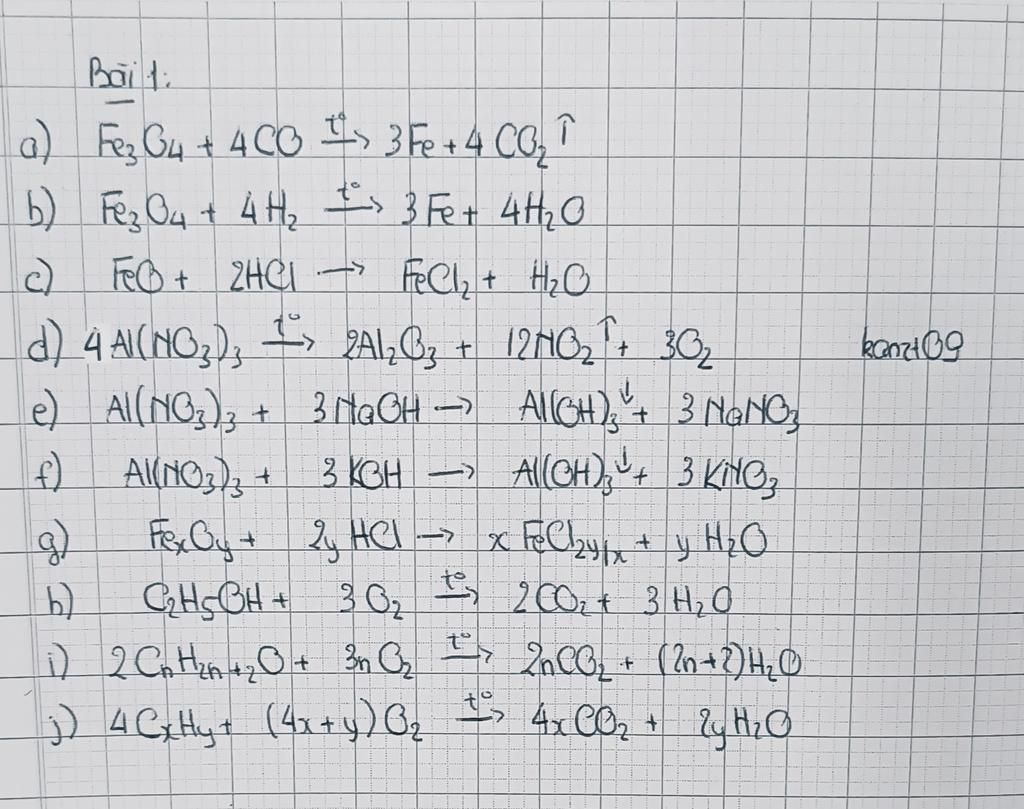 Bài 1:
a) Fe₃O₄ + 4CO t°→ 3Fe + 4CO₂↑
b) Fe₃O₄ + 4H₂ t°→ 3Fe + 4H₂O
c) FeO + 2HCl → FeCl₂ + H₂O
d) 4Al(NO₃)₃ t°→ 2Al₂O₃ + 12NO₂↑ + 3O₂ kanzt09
e) Al(NO₃)₃ + 3NaOH → Al(OH)₃↓ + 3NaNO₃
f) Al(NO₃)₃ + 3KOH → Al(OH)₃↓ + 3KNO₃
g) FeₓOy + 2yHCl → xFeCl2y/x + yH₂O
h) C₂H₅OH + 3O₂ t°→ 2CO₂ + 3H₂O
i) 2CnH2n+2O + 3nO₂ t°→ 2nCO₂ + (2n+2)H₂O
j) 4CxHy + (4x+y)O₂ t°→ 4xCO₂ + 2yH₂O